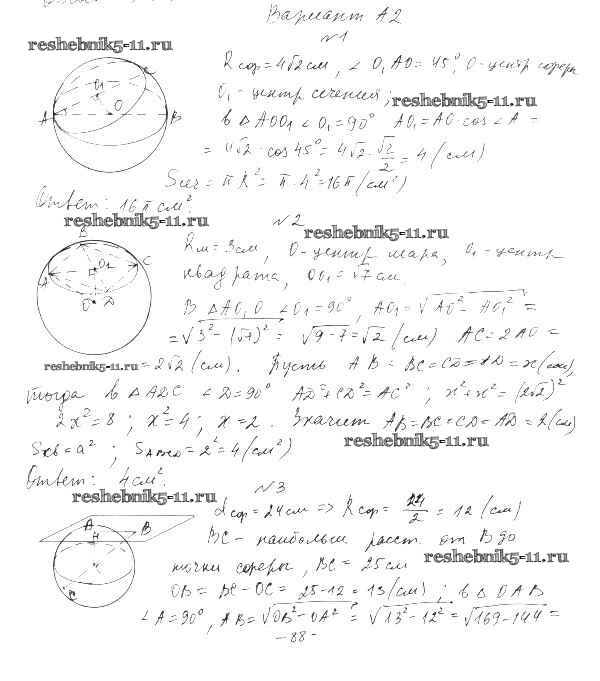 Вариант А2
№1
reshebnik5-11.ru
Rсф = 4√2 см, ∠ O₁AO = 45°, O - центр сферы
O₁ - центр сечения; reshebnik5-11.ru
в △ AOO₁ ∠O₁ = 90° AO₁ = AO · cos ∠A =
= 4√2 · cos 45° = 4√2 · √2/2 = 4 (см)
Sсеч = πR² = π · 4² = 16π (см²)
Ответ: 16π см².
reshebnik5-11.ru №2 reshebnik5-11.ru
Rш = 3см, O - центр шара, O₁ - центр
квадрата, OO₁ = √7 см
В △AO₁O ∠O₁ = 90°, AO₁ = √AO² - AO₁² =
= √3² - (√7)² = √9-7 = √2 (см) AC = 2AO =
reshebnik5-11.ru = 2√2 (см). Пусть AB = BC = CD = AD = x (см),
тогда в △ADC ∠D = 90° AD² + CD² = AC² ; x² + x² = (2√2)²
2x² = 8 ; x² = 4 ; x = 2 . Значит AB = BC = CD = AD = 2 (см)
Sкв = a² ; SABCD = 2² = 4 (см²) reshebnik5-11.ru
Ответ: 4 см².
reshebnik5-11.ru №3
dсф = 24 см => Rсф = 24/2 = 12 (см)
BC - наибольш расст. от B до
точки сферы, BC = 25 см reshebnik5-11.ru
OB = BC - OC = 25 - 12 = 13 (см) ; в △OAB
∠A = 90°, AB = √OB² - OA² = √13² - 12² = √169 - 144 =
- 88 -